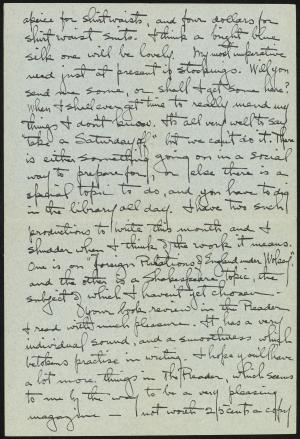 apiece for shirtwaists, and four dollars for
shirt waist suits. I think a bright blue
silk one will be lovely. My most imperative
need just at present is stockings. Will you
send me some, or shall I get some here?
When I shall ever get time to really mend my
things I don't know. It's all very well to say
"take a Saturday off," but we can't do it. There
is either something going on in a social
way to prepare for, or else there is a
special topic to do, and you have to dig
in the library all day. I have two such
productions to write this month, and I
shudder when I think of the work it means.
One is on "Foreign Relations of England under Wolsey"
and the other is a Shakespeare topic, the
subject of which I haven't yet chosen.
Your book review in the Reader
I read with much pleasure. It has a very
individual sound, and a smoothness which
betokens practise in writing. I hope you'll have
a lot more things in The Reader, which seems
to me by the way to be a very pleasing
magazine — not worth 25 cents a copy